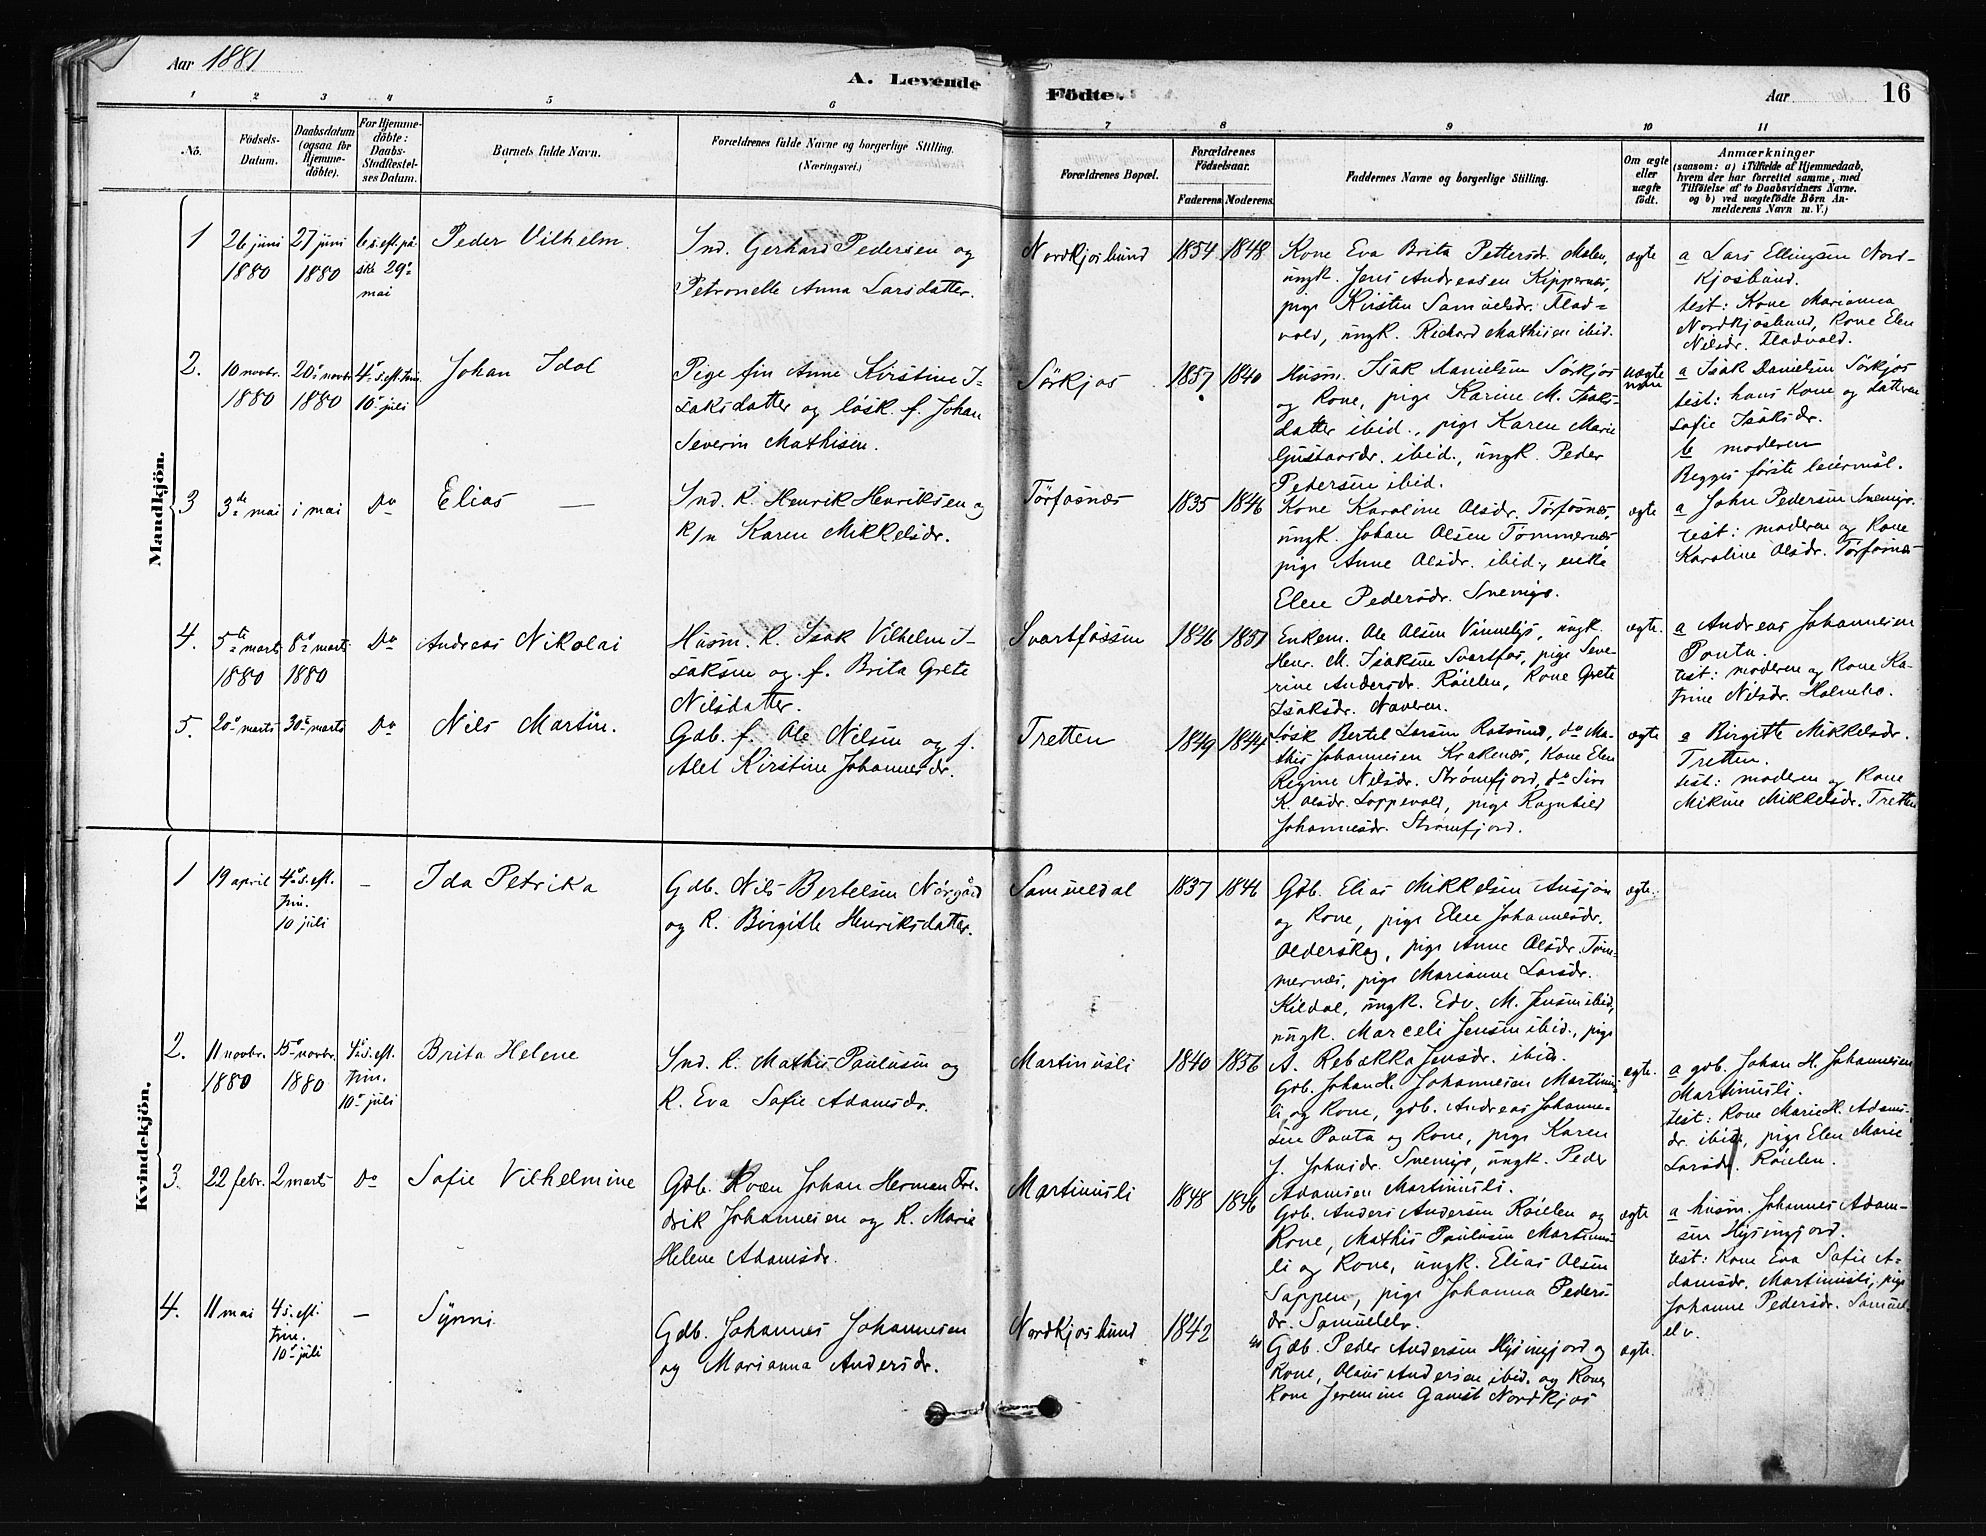 Aar 1881
A. Levende Födte.
Aar 16
1 2 3 4 5 6 7 8 9 10 11
No.
Födsels-
Datum.
Daabsdatum
(ogsaa for
Hjemme-
döbte).
For Hjemme-
döbte:
Daabs-
Stadfæstel-
ses Datum.
Barnets fulde Navn.
Forældrenes fulde Navne og borgerlige Stilling.
(Næringsvei.)
Forældrenes Bopæl.
Forældrenes
Födselsaar.
Faderens Moderens
Faddernes Navne og borgerlige Stilling.
Om ægte
eller
uægte
født.
Anmærkninger
(saasom: a) i Tilfælde af Hjemmedaab,
hvem der har forrettet samme, med
Tilföielse af to Daabsvidners Navne.
og b) ved uægtefödte Börn An-
melderens Navn m. V.)
Mandkjön.
1
26 juni
1880
27 juni
1880
6 s. eft. på-
ske 29de
mai
Peder Vilhelm.
Ind. Gerhard Pedersen og
Petronelle Anna Larsdatter.
Nordkjosbund
1854 1848
Kone Eva Brita Pettersdr. Malen,
ungk. Jens Andreasen Kippernes,
pige Kirsten Samuelsdr. Flad-
vold, ungk. Richard Mathisen ibid.
ægte
a Lars Ellingsen Nord-
kjosbund.
test: Kone Marianna
Nordkjosbund, Kone Elen
Nilsdr. Fladvold.
2.
10 novbr.
1880
20 novbr
1880
4 s. eft. trin.
10 juli
Johan Idal
Pige fin Anne Kirstine I-
saksdatter og løsk. f. Johan
Severin Mathisen.
Sørkjos
1857 1840
Husm. Isak Danielsen Sørkjos
og Kone, pige Karine M. Isaks-
datter ibid., pige Karen Marie
Gustavsdr. ibid., ungk. Peder
Pedersen ibid.
uægte
a Isak Danielsen Sørkjos
test: hans Kone og datteren
Sofie Isaksdr.
b moderen
Begges første leiermål.
3
3de mai
i mai
Do
Elias —
Ind. K. Henrik Henriksen og
K/n Karen Mikkelsdr.
Tørfosnæs
1835 1846
Kone Karoline Olsdr. Tørfosnæs,
ungk. Johan Olsen Tømmernæs
pige Anne Olsdr. ibid., enke
Elen Pedersdr. Snemyr.
ægte
a John Pedersen Snemyr.
test: moderen og Kone
Karoline Olsdr. Tørfosnæs
4.
5te marts
1880
8 marts
1880
Do
Andreas Nikolai
Husm. K. Isak Vilhelm I-
saksen og f. Brita Grete
Nilsdatter.
Svartfossen
1826 1857
Enkem. Ole Olsen Vinnelys, ungk.
Henr. M. Isaksen Svartfos, pige Seve-
rine Andersdr. Røielen, Kone Grete
Isaksdr. Naveren.
ægte.
a Andreas Johannesen
Ponta.
test: moderen og Kone Ka-
trine Nilsdr. Holmebo.
5.
20 marts
30 marts
Do
Nils Martin.
Gdb. f. Ole Nilsen og f.
Alet Kirstine Johannesdr.
Tretten
1849 1844
Løsk Bertel Larsen Rotsund, do Ma-
this Johannesen Krakenæs, Kone Elen
Regine Nilsdr. Strømfjord, do Siri
K. Olsdr. Loppevold, pige Ragnhild
Johannesdr. Strømfjord.
ægte
a Birgitte Mikkelsdr.
Tretten.
test: moderen og Kone
Mikine Mikkelsdr. Tretten
Kvindekjön.
1
19 april
4 s. eft.
trin.
10 juli
—
Ida Petrika
Gdb. Nils Bertelsen Nørgård
og K. Birgitte Henriksdatter.
Samueldal
1837 1846
Gdb. Elias Mikkelsen Ansjøn
og Kone, pige Elen Johannesdr.
Olderskog, pige Anne Olsdr. Tøm-
mernæs, pige Marianne Larsdr.
Kildal, ungk. Edv. M. Jensen ibid,
ungk. Marceli Jensen ibid., pige
A. Rebekka Jensdr. ibid.
ægte.
2.
11 novbr.
1880
15 novbr.
1880
4 s. eft.
trin.
10 juli
Brita Helene
Ind. K. Mathis Paulusen og
K. Eva Sofie Adamsdr.
Martinusli
1840 1856
Gdb. Johan H. Johannesen Martinus-
li og Kone, gdb. Andreas Johanne-
sen Ponta og Kone, pige Karen
J. Johnsdr. Snemyr, ungk. Peder
Adamsen Martinusli.
ægte.
a gdb. Johan H. Johannesen
Martinusli.
test: Kone Marie H. Adams-
dr. ibid, pige Elen Marie
Larsdr. Røielen.
3.
22 febr.
2 marts
Do
Sofie Vilhelmine
Gdb. Kvæn Johan Herman Fre-
drik Johannesen og K. Marie
Helene Adamsdr.
Martinusli
1848 1846
Gdb. Anders Andersen Røielen og
Kone, Mathis Paulusen Martinus-
li og Kone, ungk. Elias Olsen
Sappen, pige Johanna Peders-
dr. Samuelelv.
ægte
a husm. Johannes Adam-
sen Hysingjord.
test: Kone Eva Sofie A-
damsdr. Martinusli, pige
Johanne Pedersdr. Samuel-
elv.
4.
11 mai
4 s. eft.
trin.
10 juli
—
Synni
Gdb. Johannes Johannesen
og Marianna Andersdr.
Nordkjosbund
1842
Gdb. Peder Andersen Hysingjord og
Kone, Olaus Andersen ibid. og Kone
Kone Jeremine Gamst Nordkjos
ægte.